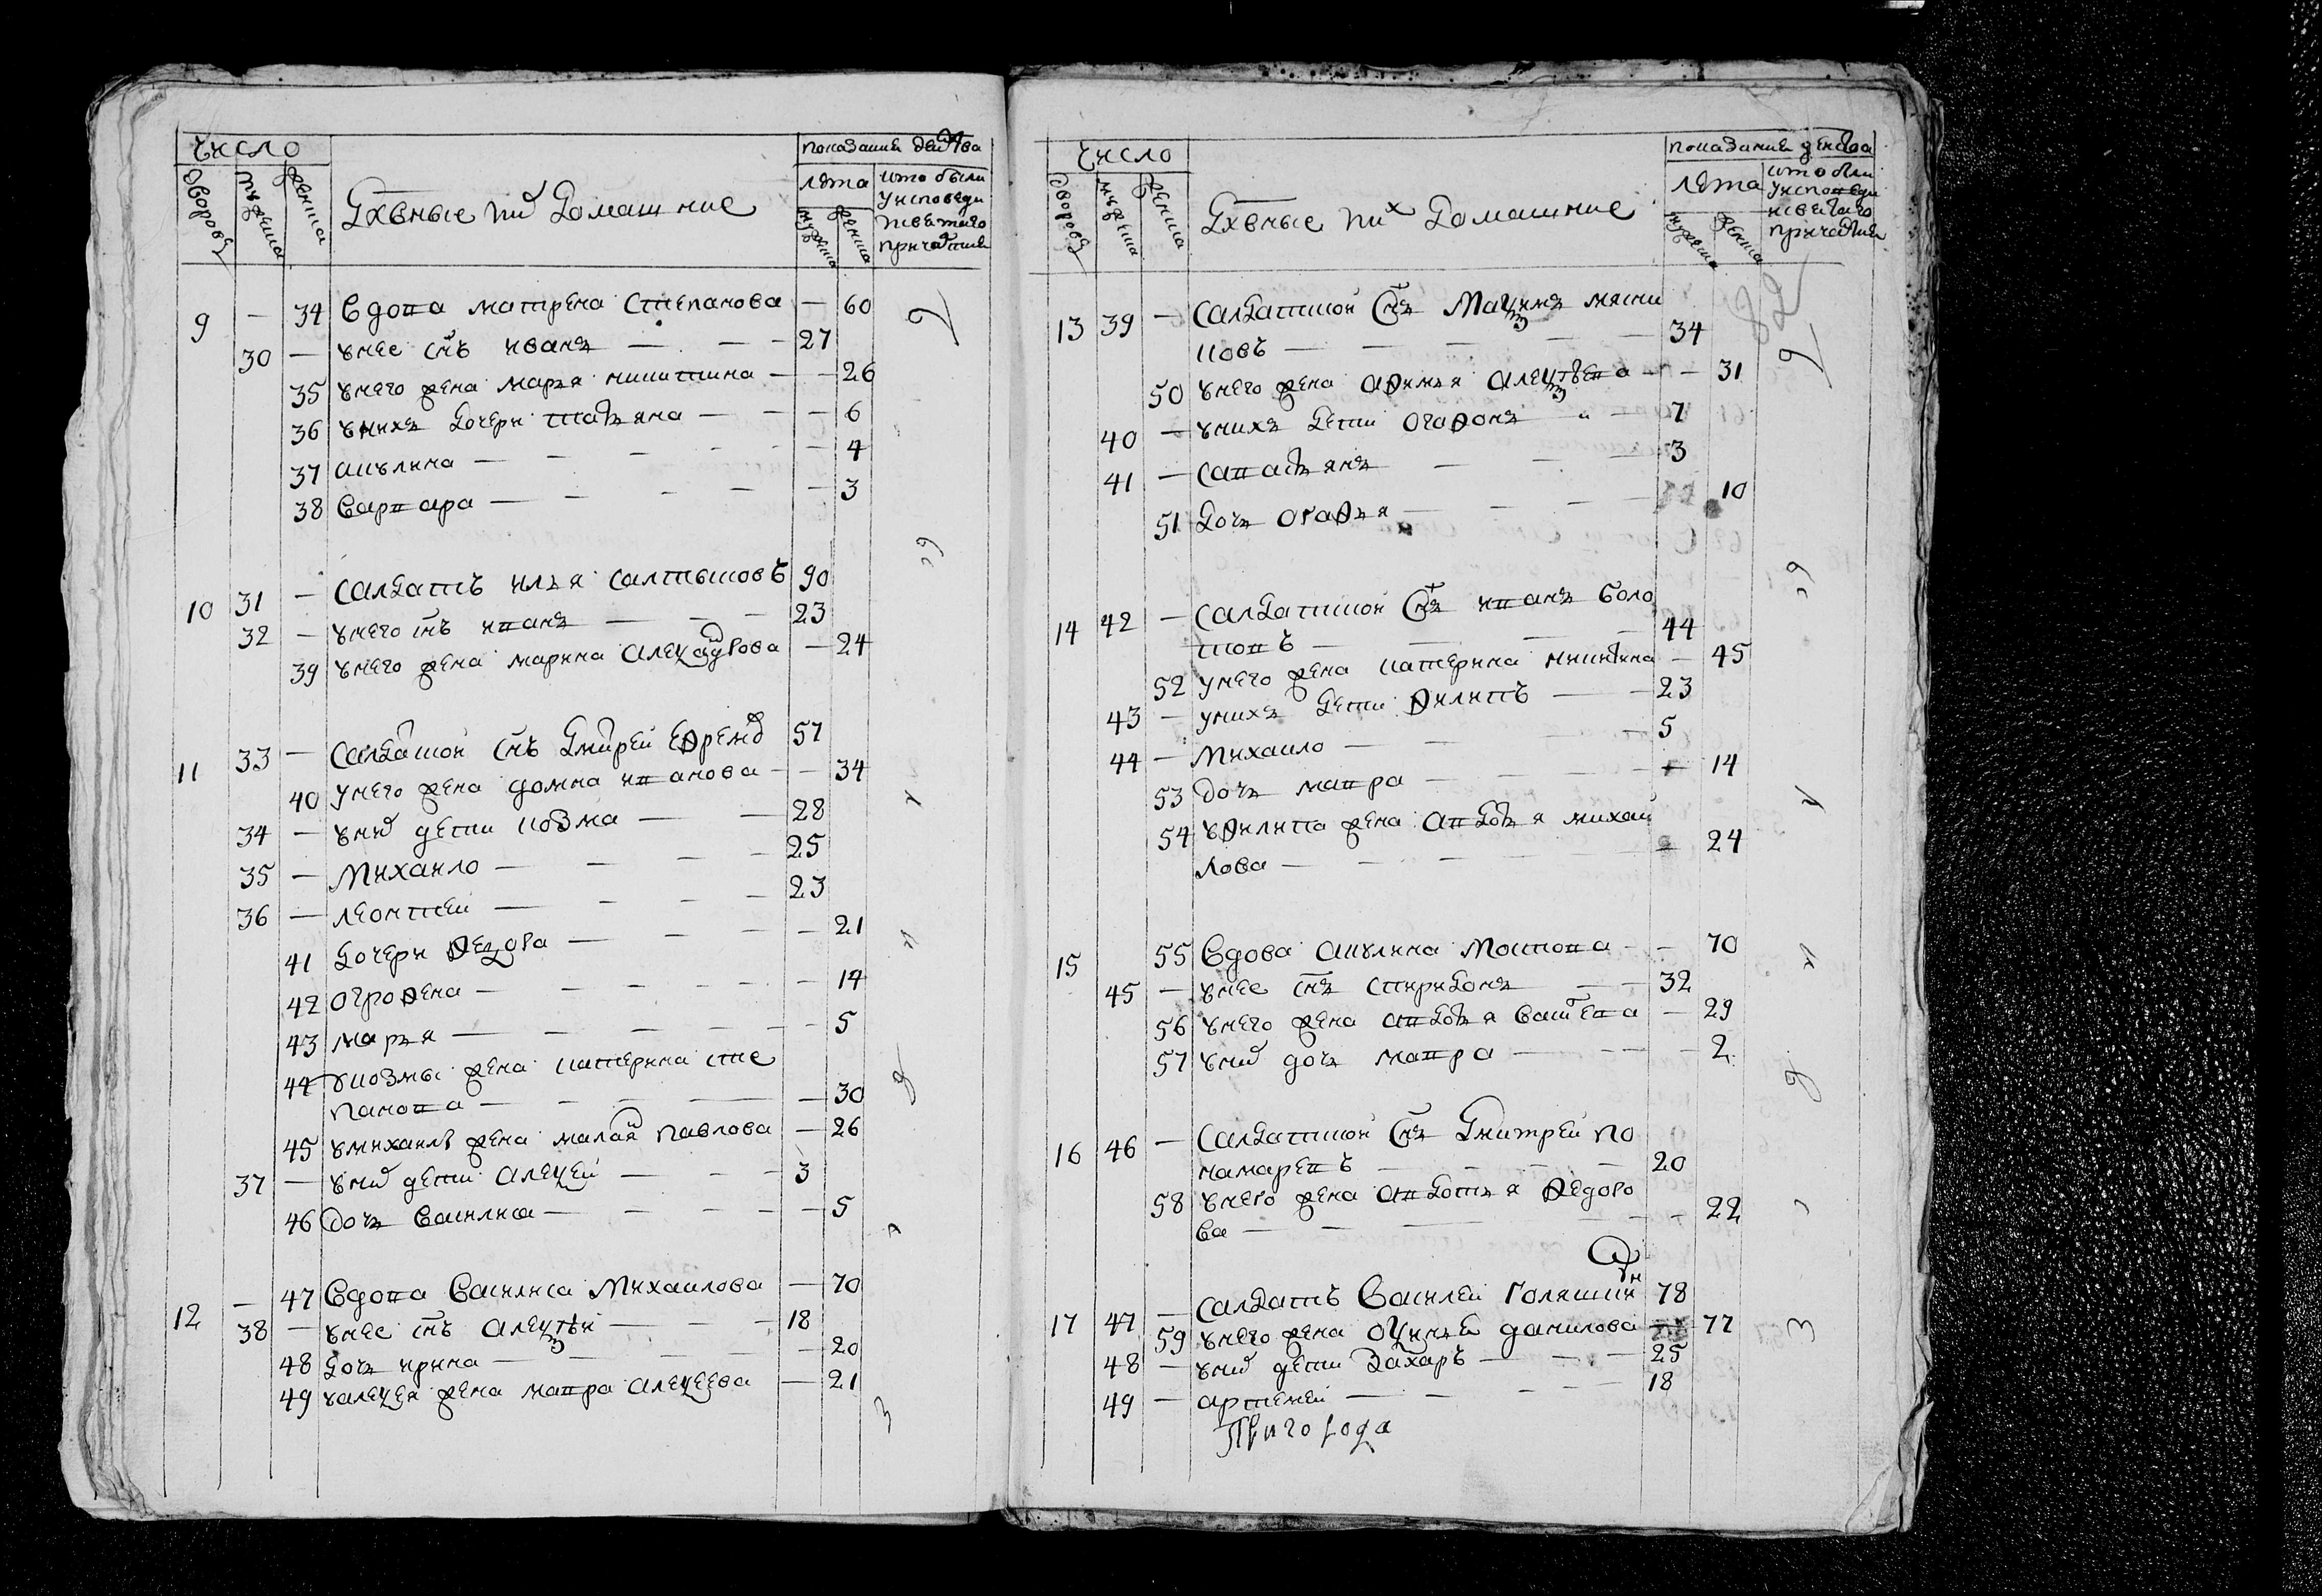 Число
Дворовъ
мужеска
женска
Дховные и ихъ Домашние
показание действа
лѣта
мужеска
женска
кто были
у исповеди
и светаго
причастия
9 — 34 вдова матрена Степанова — 60
30 — у нее снъ иванъ — 27
35 у него жена марья никитина — 26
36 у нихъ дочери татьяна — 6
37 акулина — 4
38 варвара — 3
10 31 — салдатъ илья салтыковъ 90
32 — у него снъ иванъ — 23
39 у него жена марина алеѯандрова — 24
11 33 — салдацкой снъ дмитрей ефремов 57
40 у него жена домна иванова — 34
34 — у них дети козма — 28
35 — михаило — 25
36 — леонтей — 23
41 дочери федора — 21
42 огрофена — 14
43 марья — 5
44 у козмы жена катерина сте
панова — 30
45 у михаила жена малая павлова — 26
37 — у них дети алеѯей — 3
46 дочь василиса — 5
12 — 47 вдова василиса михаилова — 70
38 — у нее снъ алеѯѣй — 18
48 дочь ирина — 20
49 у алеѯея жена мавра алеѯеева — 21
Число
Дворовъ
мужеска
женска
Дховные и ихъ Домашние
показание действа
лѣта
мужеска
женска
кто были
у исповеди
и светаго
причастия
82
13 39 — салдатской снъ маѯимъ мясни
ковъ — 34
50 у него жена афимья алеѯѣева — 31
40 — у нихъ дети огафонъ — 7
41 — савастьянъ — 3
51 дочь огафья — 10
14 42 — салдатской снъ иванъ боло
товъ — 44
52 у него жена катерина никитина — 45
43 — у нихъ дети филипъ — 23
44 — михаило — 5
53 дочь мавра — 14
54 у филипа жена авдотья михаи
лова — 24
15 55 вдова акулина мокиова — 70
45 — у нее снъ спиридонъ — 32
56 у него жена авдотья васильева — 29
57 у них дочь мавра — 2
16 46 — салдатской снъ дмитрей по
намаревъ — 20
58 у него жена авдотья федоро
ва — 22
17 47 — салдатъ василей голяшкин 78
59 у него жена оѯинья данилова — 77
48 — у них дети захаръ — 25
49 — артемей — 18
Пригорода